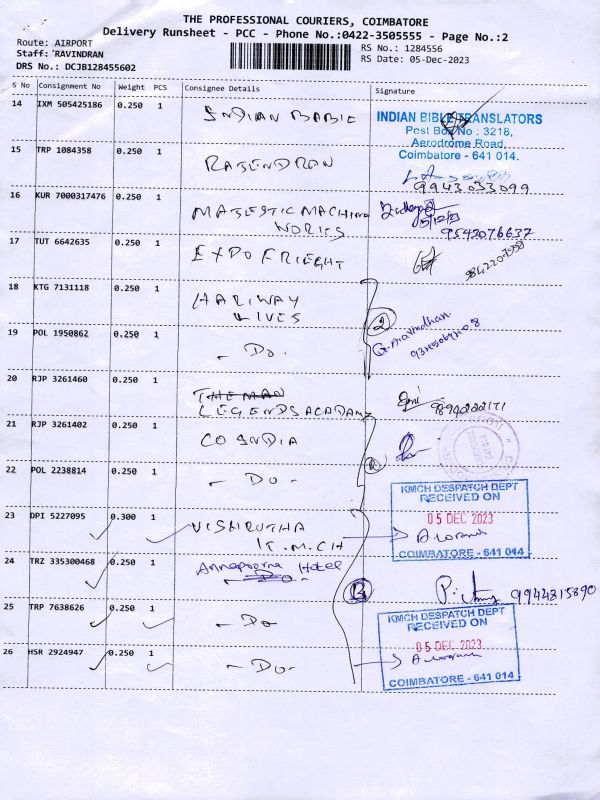 THE PROFESSIONAL COURIERS, COIMBATORE
Delivery Runsheet - PCC - Phone No.:0422-3505555 - Page No.:2
Route: AIRPORT
Staff: RAVINDRAN
DRS No.: DCJB128455602
RS No.: 1284556
RS Date: 05-Dec-2023
S No Consignment No Weight PCS Consignee Details Signature
14 IXM 505425186 0.250 1 INDIAN BABIE
INDIAN BIBLE TRANSLATORS
Post Box No : 3218,
Aerodrome Road,
Coimbatore - 641 014.
15 TRP 1084358 0.250 1 RAJENDRAN
9943033099
16 KUR 7000317476 0.250 1 MAJESTIC MACHINE
WORKS
5/12/23
9542076637
17 TUT 6642635 0.250 1 EXPO FRIEGHT
18 KTG 7131118 0.250 1 HARIWAY
LIVES
2
G. Aravindhan
19 POL 1950862 0.250 1 - Do -
20 RJP 3261460 0.250 1 THE MAN
LEGENDS ACADAMY
9894222171
21 RJP 3261402 0.250 1 CO INDIA
22 POL 2238814 0.250 1 - Do -
2
KMCH DESPATCH DEPT
RECEIVED ON
05 DEC 2023
COIMBATORE - 641 014.
23 DPI 5227095 0.300 1 VISHRUTHA
K.M.CH
24 TRZ 335300468 0.250 1 Annapoorna Hotel
- Do -
13
9944315890
25 TRP 7638626 0.250 1 - Do -
KMCH DESPATCH DEPT
RECEIVED ON
05 DEC 2023
COIMBATORE - 641 014.
26 HSR 2924947 0.250 1 - Do -